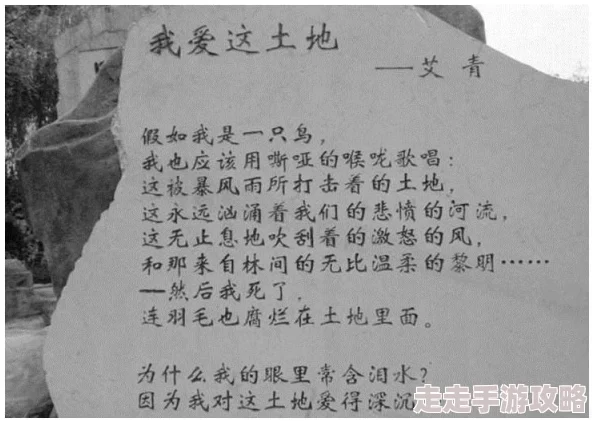 我爱这土地
——艾青
假如我是一只鸟，
我也应该用嘶哑的喉咙歌唱：
这被暴风雨所打击着的土地，
这永远汹涌着我们的悲愤的河流，
这无止息地吹刮着的激怒的风，
和那来自林间的无比温柔的黎明……
——然后我死了，
连羽毛也腐烂在土地里面。
为什么我的眼里常含泪水？
因为我对这土地爱得深沉
走走手游攻略